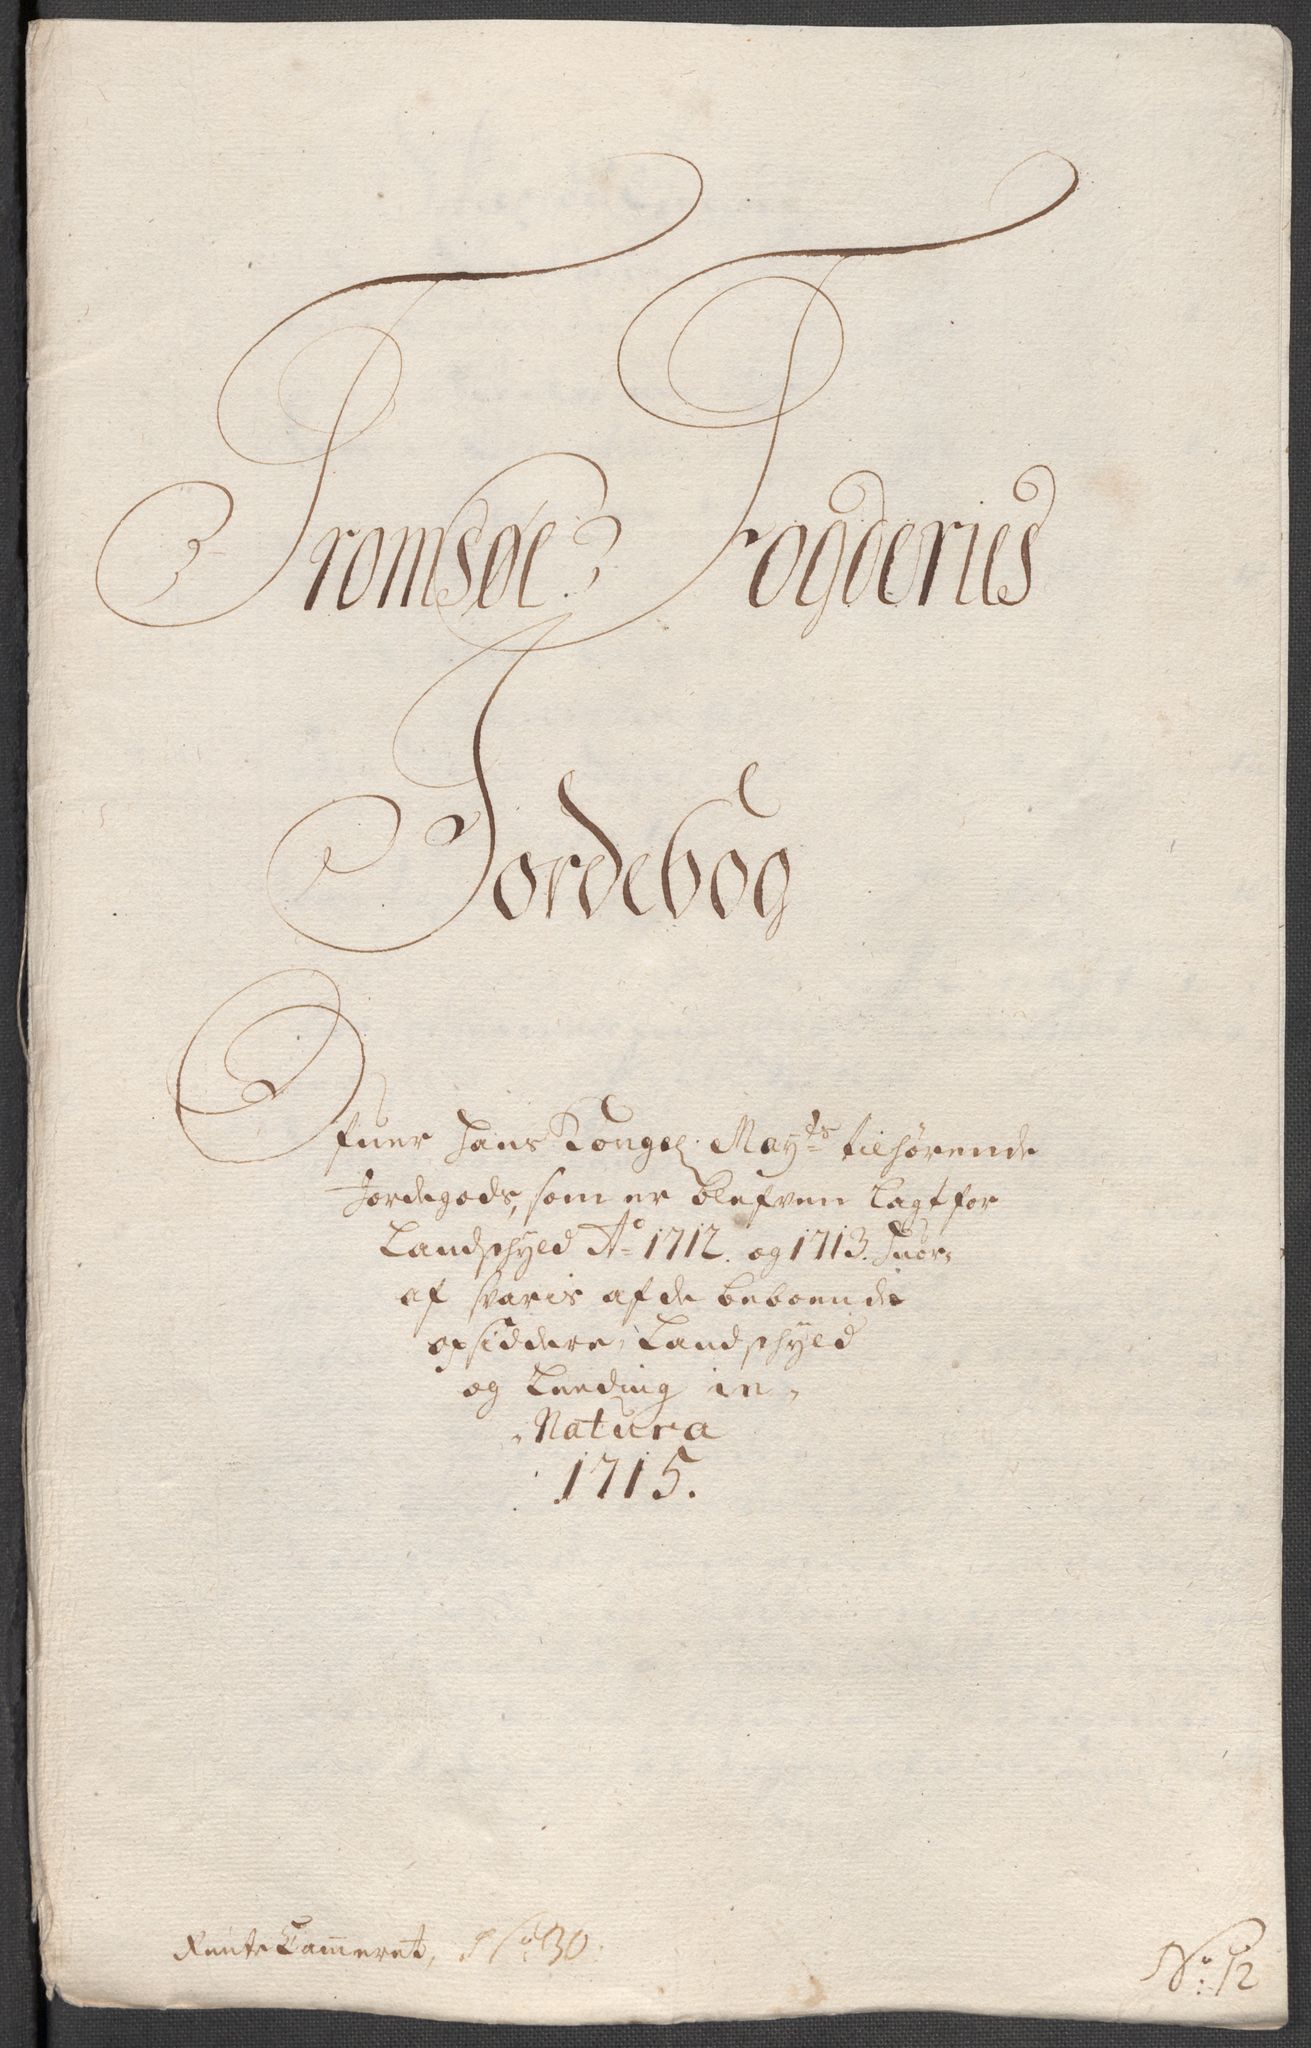 Tromsøe Fogderies
Jordebog
Ofuer Hans Kongel: Mayts tilhørende
Jordegods, som er blefven Lagt for
Landschyld Ao 1712. og 1713. Huor-
af svaris af de beboende
opsiddere, Landschyld
og Leeding in-
Natura
1715.
RenteCammeret, No 30.
No: 12